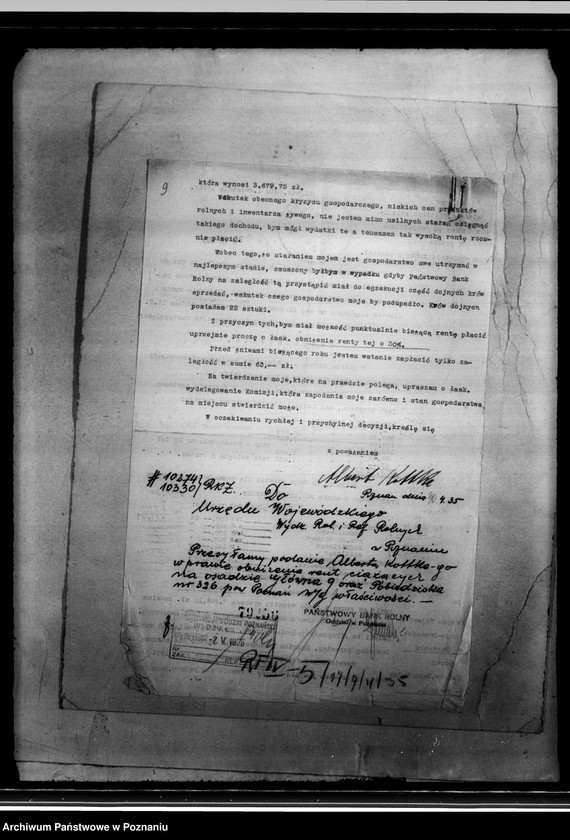 9
która wynosi 3.679,75 zł.
Wskutek obecnego kryzysu gospodarczego, niskich cen produktów
rolnych i inwentarza żywego, nie jestem mimo usilnych starań osiągnąć
takiego dochodu, bym mógł wydatki te a temsamem tak wysoką rentę rocz-
nie płacić.
Wobec tego,że staraniem mojem jest gospodarstwo swe utrzymać w
najlepszym stanie, zmuszony byłbym w wypadku gdyby Państwowy Bank
Rolny na zaległość tą przystąpić miał do egzekucji część dojnych krów
sprzedać, wskutek czego gospodarstwo moje by podupadło. Krów dojnych
posiadam 22 sztuki.
Z przyczyn tych,bym miał możność punktualnie bieżącą rentę płacić
uprzejmie proszę o łask. obniżenie renty tej o 50%.
Przed żniwami bieżącego roku jestem wstanie zapłacić tylko za-
ległość w sumie 63,-- zł.
Na twierdzenie moje,które na prawdzie polega, upraszam o łask.
wydelegowanie Komisji,która zapodania moje zarówno i stan gospodarstwa
na miejscu stwierdzić może.
W oczekiwaniu rychłej i przychylnej decyzji,kreślę się
z poważaniem
Albert Kottke
# 10274/
10330/ RKZ.
Poznań dnia 4.35
Do
Urzędu Wojewódzkiego
Wydz. Rol. i Ref. Rolnych
w Poznaniu
Przesyłamy podanie Alberta Kottke-go
w prawie obniżenia rent ciążących
na osadzie Główna 9 oraz Pobiedziska
nr 326 pow Poznań w/g właściwości. —
79466
PAŃSTWOWY BANK ROLNY
Oddział w Poznaniu
2 V. 1935
Archiwum Państwowe w Poznaniu